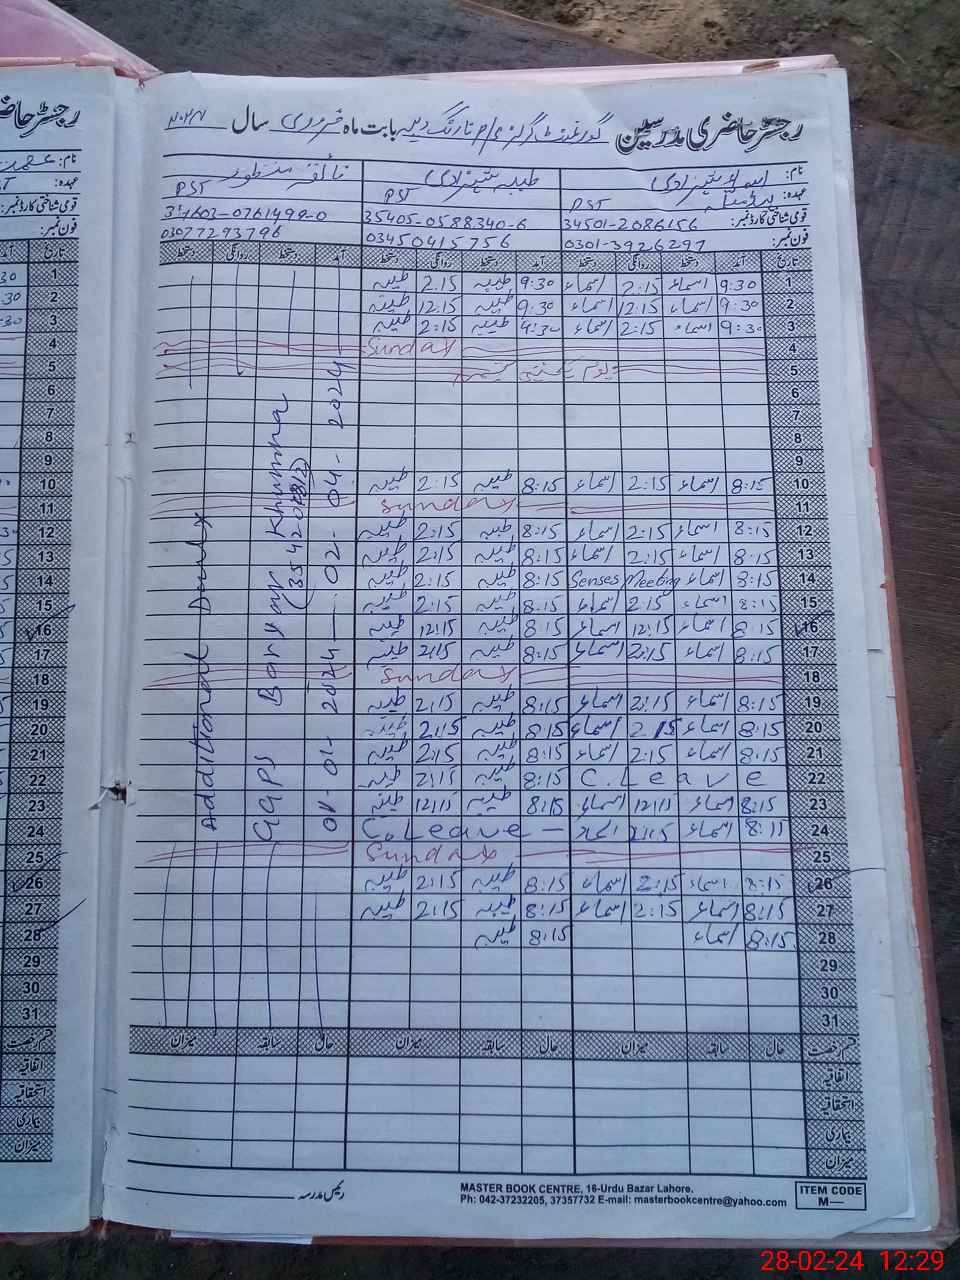 رجسٹر حاضری مدرسین گورنمنٹ گرلز بابت ماہ فروری سال ۲۰۲۴
نام: اسماء شہزادی طیبہ شہزادی منظور
عہدہ: PST PST PST
قومی شناختی کارڈ نمبر: 34501-2086156 35405-0588340-6
فون نمبر: 0301-3926297 03450415756 03077293796
تاریخ آمد دستخط روانگی دستخط آمد دستخط روانگی دستخط آمد دستخط روانگی دستخط
1 9:30 اسماء 2:15 اسماء 9:30 طیبہ 2:15 طیبہ
2 9:30 اسماء 12:15 اسماء 9:30 طیبہ 12:15 طیبہ
3 9:30 اسماء 2:15 اسماء 9:30 طیبہ 2:15 طیبہ
4 Sunday
5 یوم یکجہتی کشمیر
6
7
8
9
10 8:15 اسماء 2:15 اسماء 8:15 طیبہ 2:15 طیبہ
11 Sunday
12 8:15 اسماء 2:15 اسماء 8:15 طیبہ 2:15 طیبہ
13 8:15 اسماء 2:15 اسماء 8:15 طیبہ 2:15 طیبہ
14 8:15 اسماء Senses Meeting 8:15 طیبہ 2:15 طیبہ
15 8:15 اسماء 2:15 اسماء 8:15 طیبہ 2:15 طیبہ
16 8:15 اسماء 12:15 اسماء 8:15 طیبہ 12:15 طیبہ
17 8:15 اسماء 2:15 اسماء 8:15 طیبہ 2:15 طیبہ
18 Sunday
19 8:15 اسماء 2:15 اسماء 8:15 طیبہ 2:15 طیبہ
20 8:15 اسماء 2:15 اسماء 8:15 طیبہ 2:15 طیبہ
21 8:15 اسماء 2:15 اسماء 8:15 طیبہ 2:15 طیبہ
22 C.Leave 8:15 طیبہ 2:15 طیبہ
23 8:15 اسماء 12:15 اسماء 8:15 طیبہ 12:15 طیبہ
24 8:15 اسماء 2:15 اسماء C.Leave
25 Sunday
26 8:15 اسماء 2:15 اسماء 8:15 طیبہ 2:15 طیبہ
27 8:15 اسماء 2:15 اسماء 8:15 طیبہ 2:15 طیبہ
28 8:15 اسماء 8:15 طیبہ
29
30
31
Additional Duity
GGPS Baryar Khumna
01-02-2024 — 02-04-2024
قسم رخصت حال سابقہ میزان حال سابقہ میزان حال سابقہ میزان
اتفاقیہ
استحقاقیہ
بیماری
میزان
رئیس مدرسہ
MASTER BOOK CENTRE, 16-Urdu Bazar Lahore.
Ph: 042-37232205, 37357732 E-mail: masterbookcentre@yahoo.com
ITEM CODE
M—
28-02-24 12:29